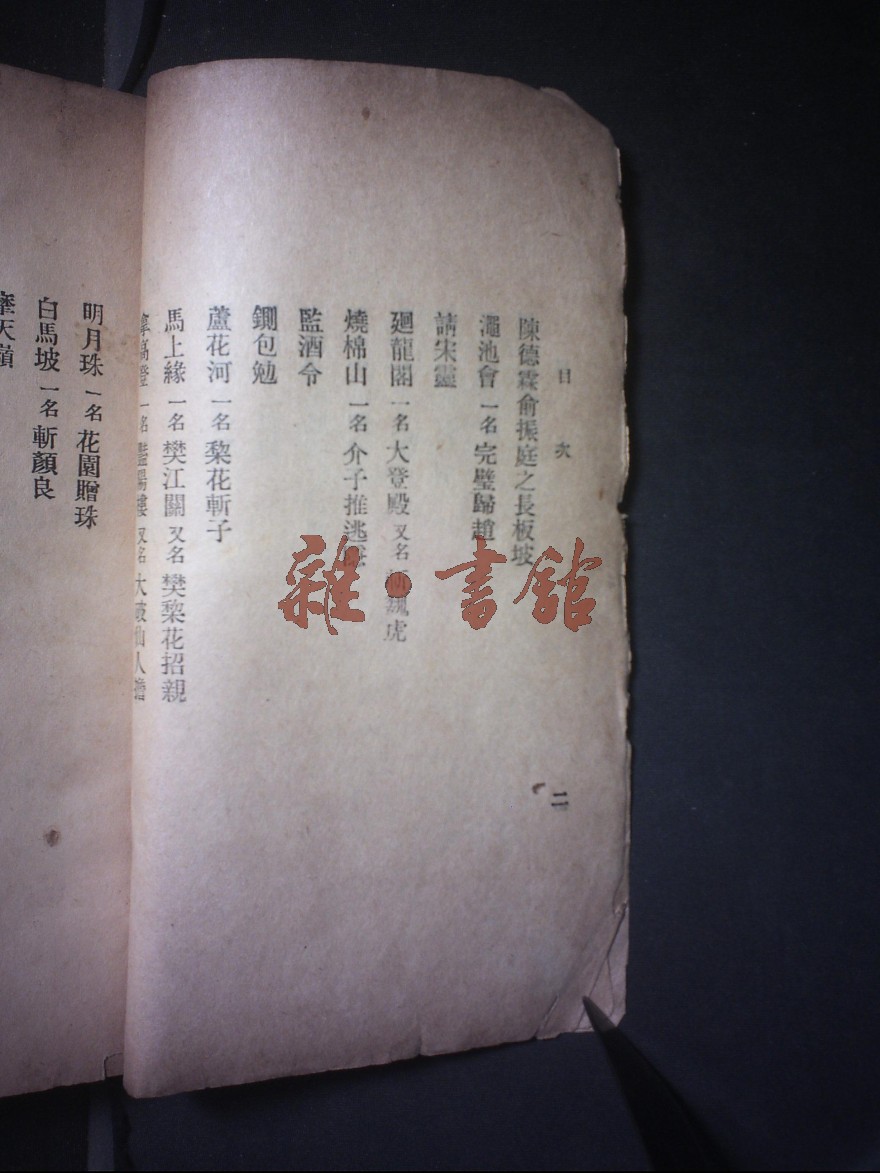 目次
陳德霖俞振庭之長板坡
澠池會 一名 完璧歸趙
請宋靈
廻龍閣 一名 大登殿 又名 虎
燒棉山 一名 介子推逃
監酒令
鍘包勉
蘆花河 一名 梨花斬子
馬上緣 一名 樊江關 又名 樊梨花招親
拿高登 一名 豔陽樓 又名 大破仙人擔
二
明月珠 一名 花園贈珠
白馬坡 一名 斬顏良
摩天嶺
雜·書館